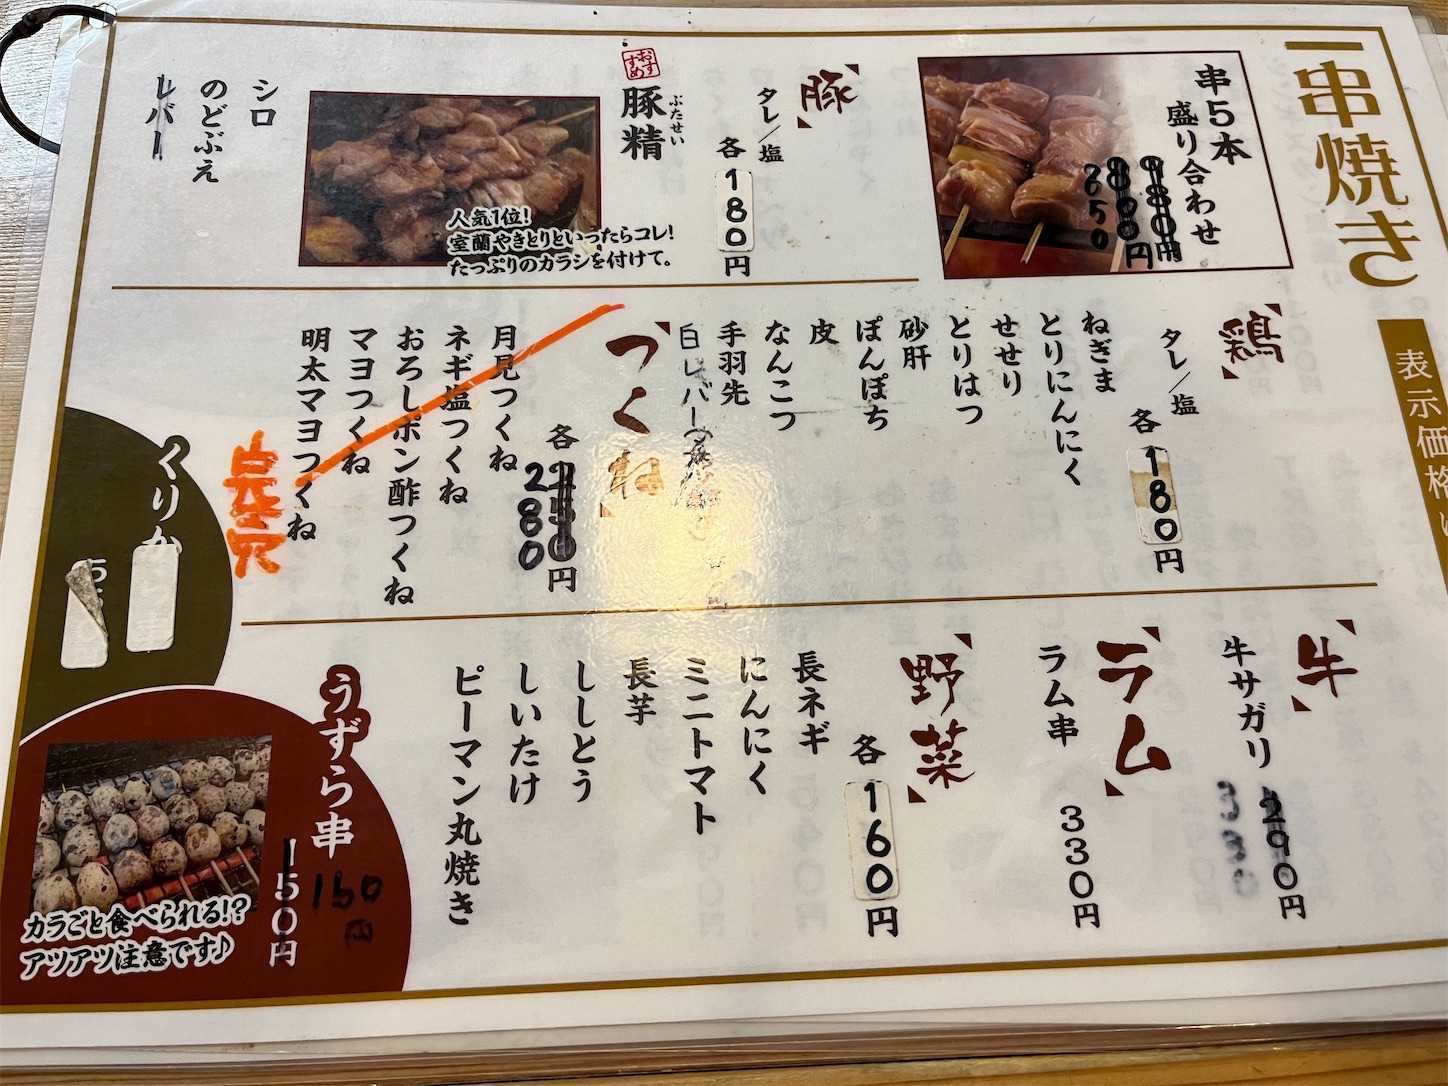 串焼き
表示価格
串5本
盛り合わせ
850
円
豚
タレ／塩
各180円
おすすめ
豚精
ぶたせい
人気1位!
室蘭やきとりといったらコレ!
たっぷりのカラシを付けて。
シロ
のどぶえ
レバー
鶏
タレ／塩
各180円
ねぎま
とりにんにく
せせり
とりはつ
砂肝
ぽんぽち
皮
なんこつ
手羽先
白レバー
つくね
各280円
月見つくね
ネギ塩つくね
おろしポン酢つくね
マヨつくね
明太マヨつくね
牛
牛サガリ 290円
ラム
ラム串 330円
野菜
各160円
長ネギ
にんにく
ミニトマト
長芋
ししとう
しいたけ
ピーマン丸焼き
うずら串
150円
160円
カラごと食べられる!?
アツアツ注意です♪